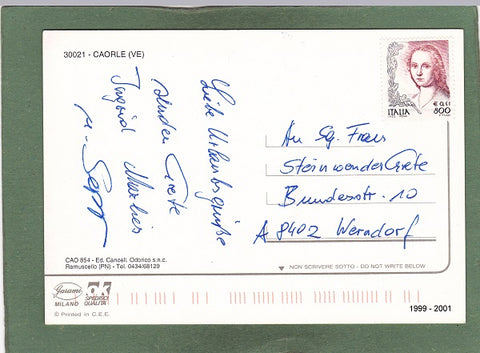 30021 - CAORLE (VE)
Liebe Urlaubsgrüße
senden Grete
Ingrid Marlies
u. Sepp
ITALIA
€ 0,41
800
An Sg. Frau
Steinwender Grete
Bundesstr. 10
A 8402 Werndorf
CAO 854 - Ed. Cancell. Odorico s.n.c.
Ramuscello (PN) - Tel. 0434/68129
NON SCRIVERE SOTTO - DO NOT WRITE BELOW
Garami
MILANO
OK
SPEDISCI
QUALITÀ
© Printed in C.E.E.
1999 - 2001